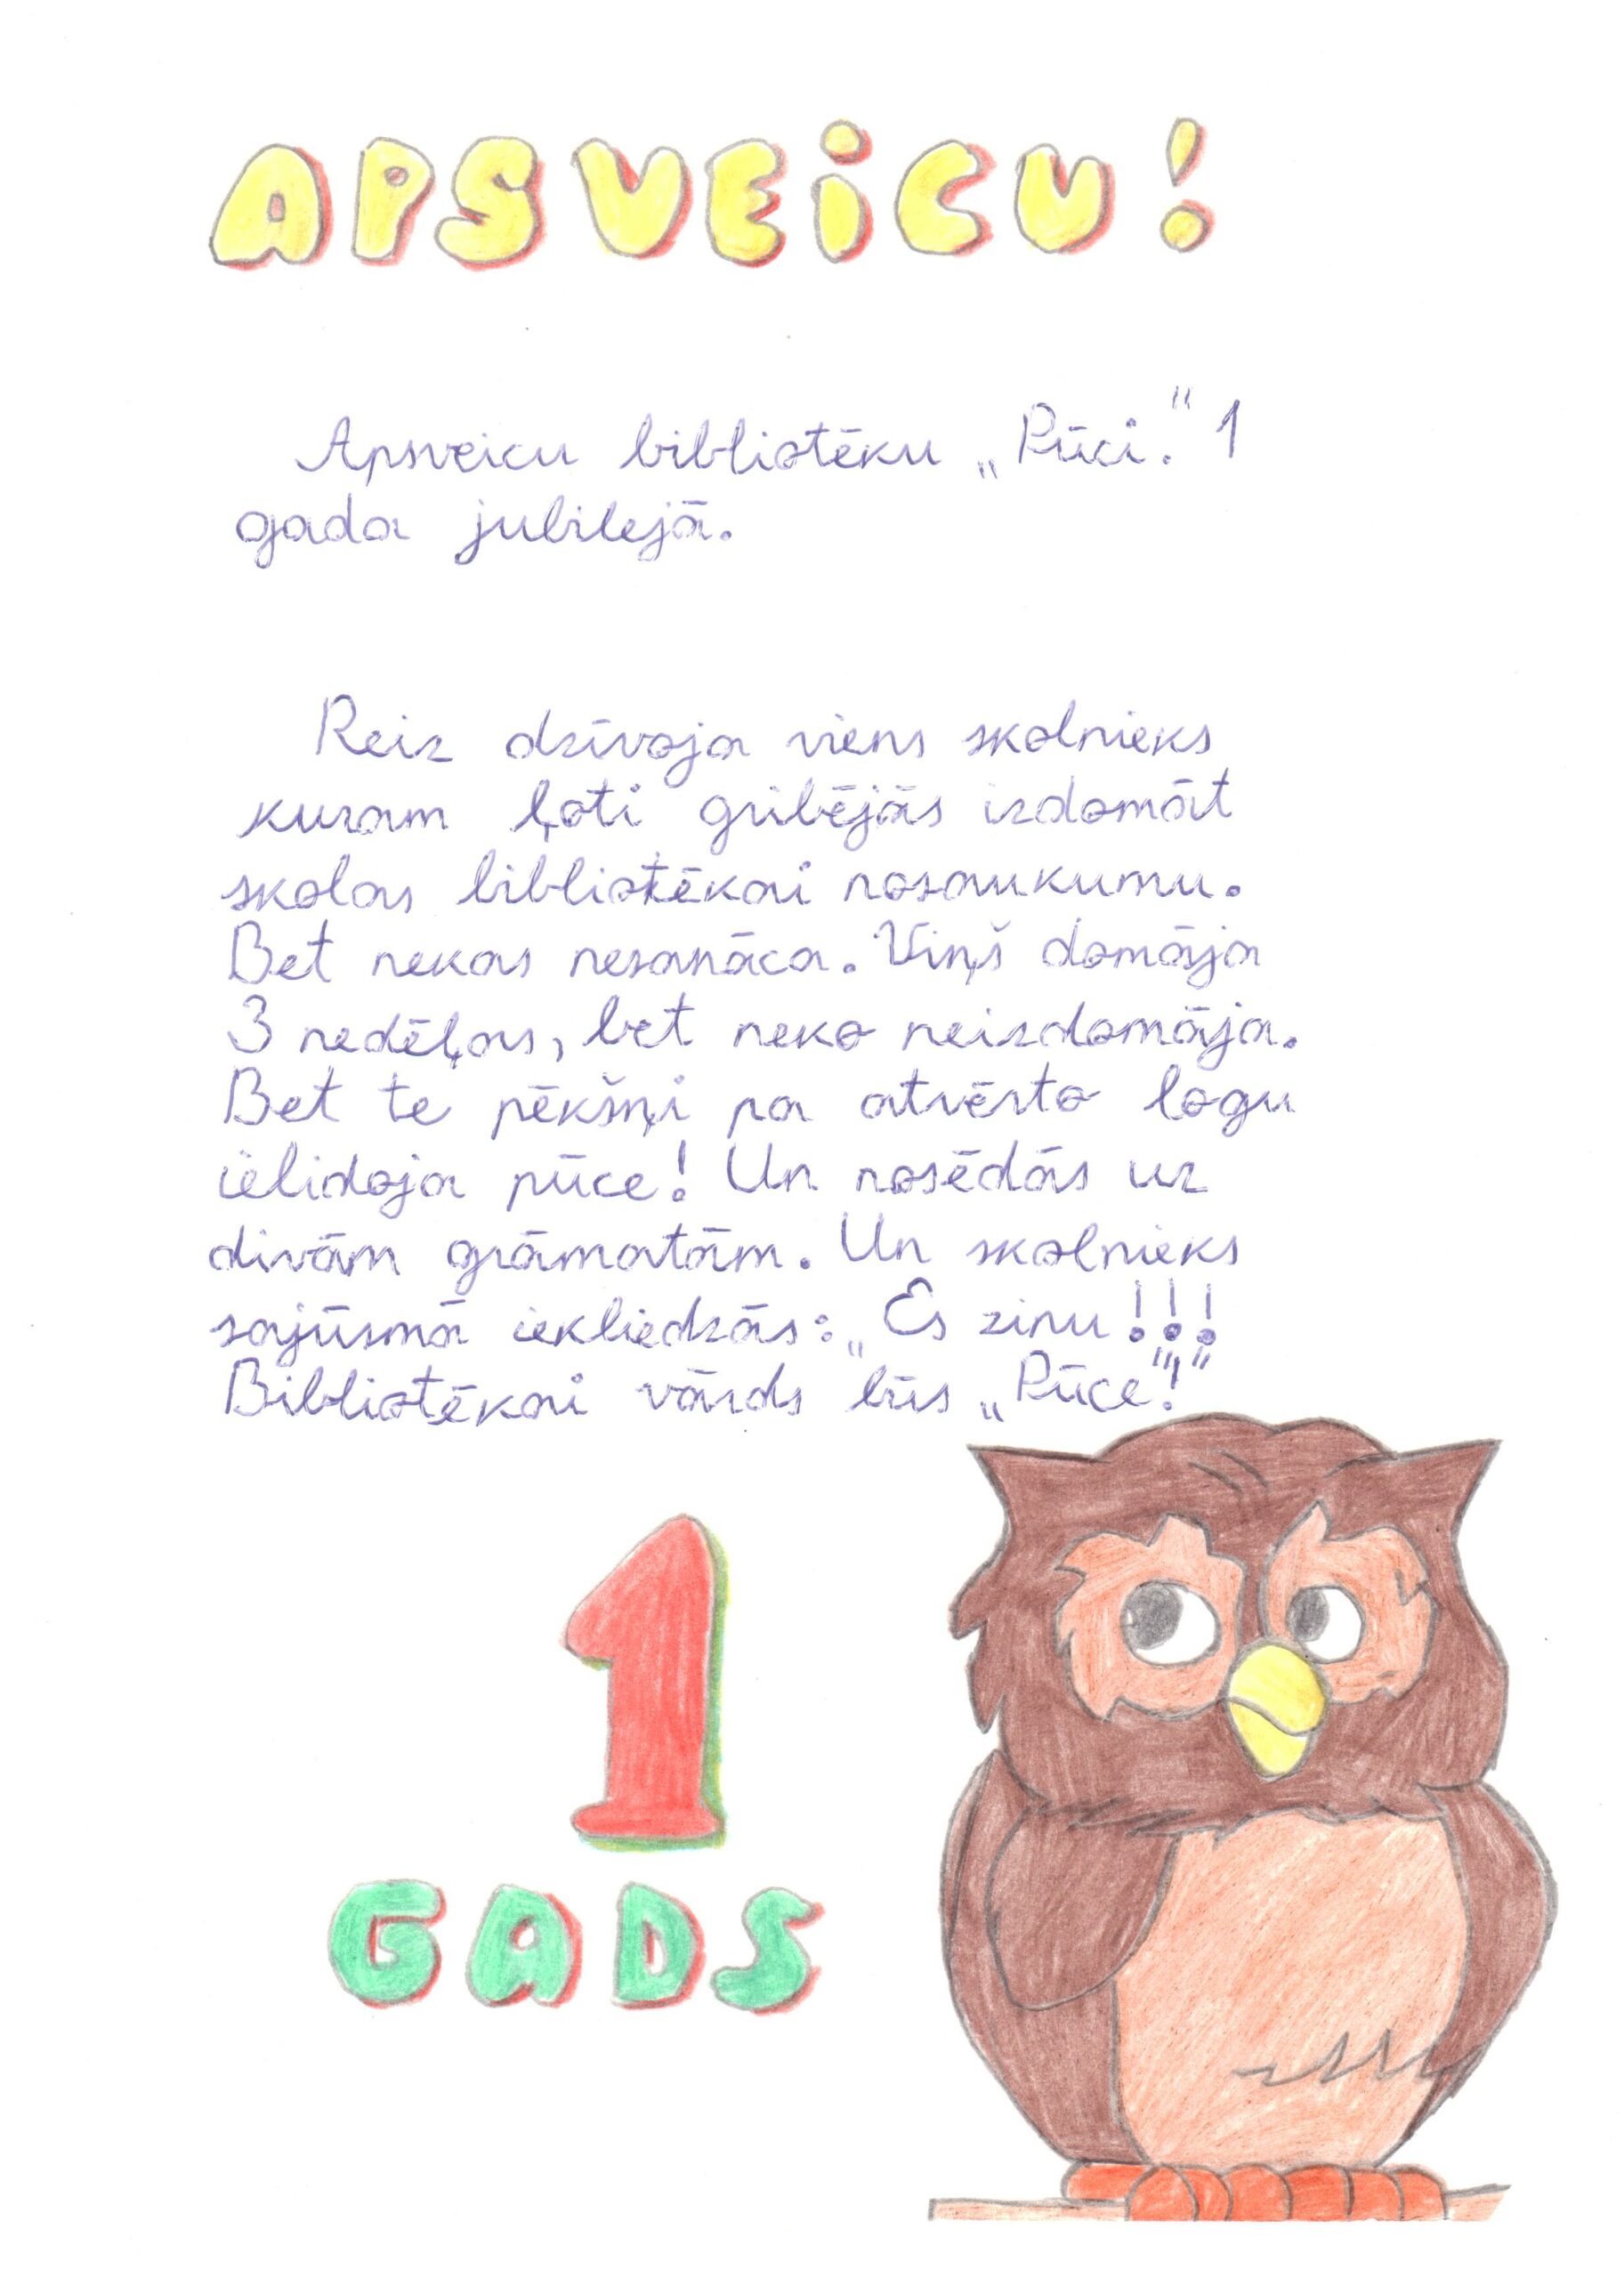 APSVEiCU!
Apsveicu bibliotēku „Pūci." 1
gada jubilejā.
Reiz dzīvoja viens skolnieks
kuram ļoti gribējās izdomāt
skolas bibliotēkai nosaukumu.
Bet nekas nesanāca. Viņš domāja
3 nedēļas, bet neko neizdomāja.
Bet te pēkšņi pa atvērto logu
ielidoja pūce! Un nosēdās uz
divām grāmatām. Un skolnieks
sajūsmā iekliedzās: „Es zinu!!!
Bibliotēkai vārds būs „Pūce"!"
1
GADS